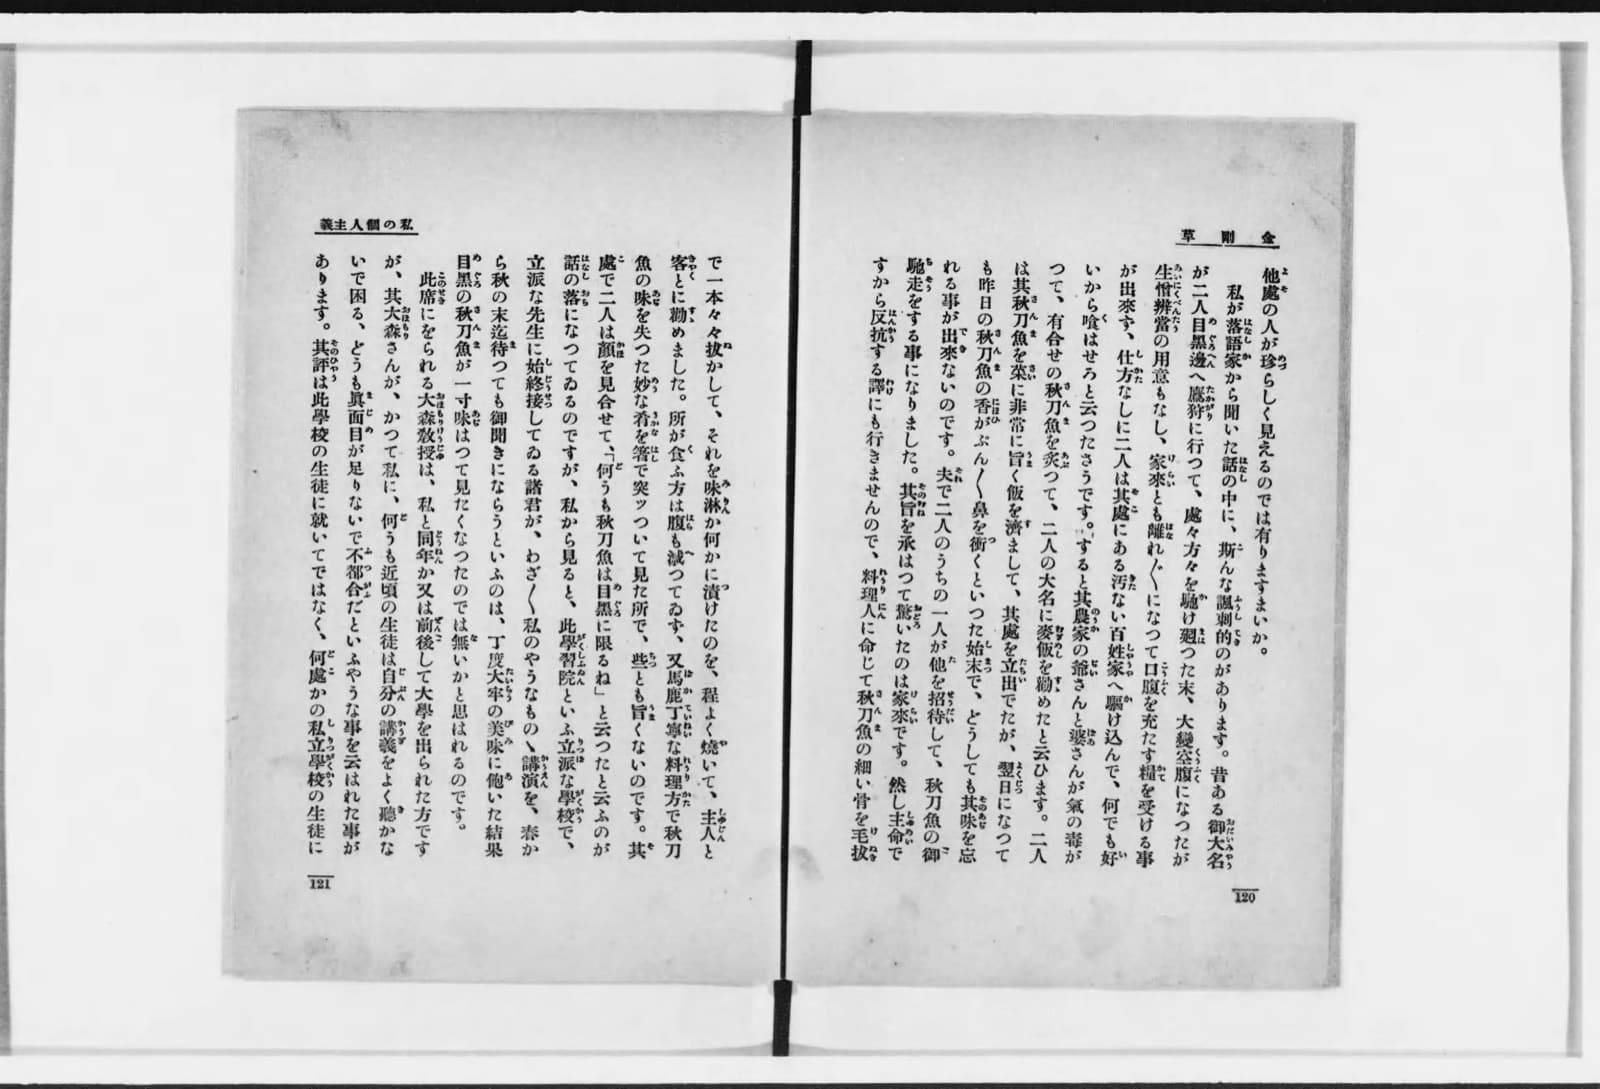 金剛草
他處の人が珍らしく見えるのでは有りますまいか。
私が落語家から聞いた話の中に、斯んな諷刺的のがあります。昔ある御大名
が二人目黑邊へ鷹狩に行つて、處々方々を馳け廻つた末、大變空腹になつたが
生憎辨當の用意もなし、家來とも離れ〴〵になつて口腹を充たす糧を受ける事
が出來ず、仕方なしに二人は其處にある汚ない百姓家へ驅け込んで、何でも好
いから喰はせろと云つたさうです。すると其農家の爺さんと婆さんが氣の毒が
つて、有合せの秋刀魚を炙つて、二人の大名に麥飯を勸めたと云ひます。二人
は其秋刀魚を菜に非常に旨く飯を濟まして、其處を立出でたが、翌日になつて
も昨日の秋刀魚の香がぷん〳〵鼻を衝くといつた始末で、どうしても其味を忘
れる事が出來ないのです。夫で二人のうちの一人が他を招待して、秋刀魚の御
馳走をする事になりました。其旨を承はつて驚いたのは家來です。然し主命で
すから反抗する譯にも行きませんので、料理人に命じて秋刀魚の細い骨を毛拔
120
私の個人主義
で一本々々拔かして、それを味淋か何かに漬けたのを、程よく燒いて、主人と
客とに勸めました。所が食ふ方は腹も減つてゐず、又馬鹿丁寧な料理方で秋刀
魚の味を失つた妙な肴を箸で突ッついて見た所で、些とも旨くないのです。其
處で二人は顏を見合せて、「何うも秋刀魚は目黑に限るね」と云つたと云ふのが
話の落になつてゐるのですが、私から見ると、此學習院といふ立派な學校で、
立派な先生に始終接してゐる諸君が、わざ〳〵私のやうなものゝ講演を、春か
ら秋の末迄待つても御聞きにならうといふのは、丁度大牢の美味に飽いた結果
目黑の秋刀魚が一寸味はつて見たくなつたのでは無いかと思はれるのです。
此席にをられる大森敎授は、私と同年か又は前後して大學を出られた方です
が、其大森さんが、かつて私に、何うも近頃の生徒は自分の講義をよく聽かな
いで困る、どうも眞面目が足りないで不都合だといふやうな事を云はれた事が
あります。其評は此學校の生徒に就いてではなく、何處かの私立學校の生徒に
121